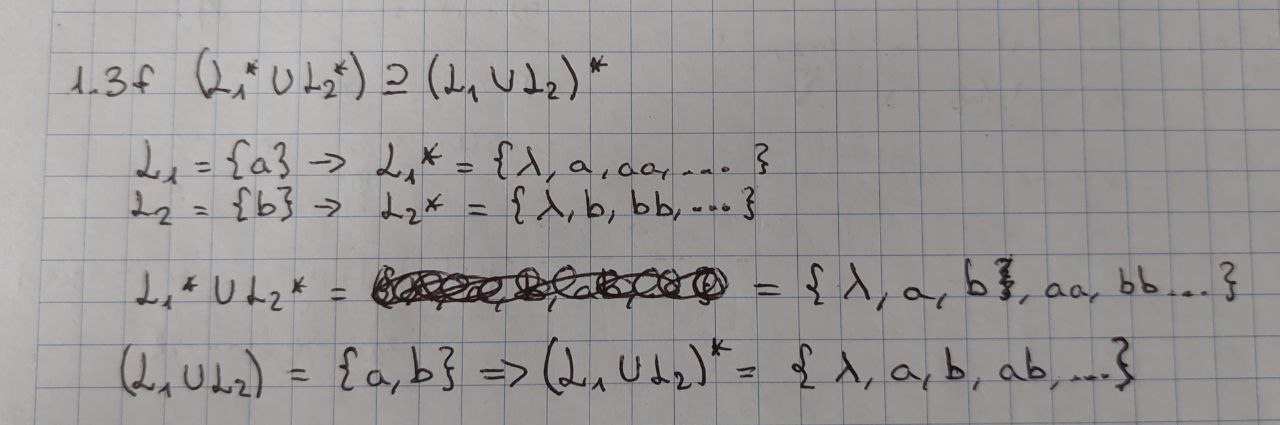 1.3f (L₁* ∪ L₂*) ⊇ (L₁ ∪ L₂)*
L₁ = {a} → L₁* = {λ, a, aa, .... }
L₂ = {b} → L₂* = {λ, b, bb, ....}
L₁* ∪ L₂* = = {λ, a, b, aa, bb ...}
(L₁ ∪ L₂) = {a, b} => (L₁ ∪ L₂)* = {λ, a, b, ab, ....}